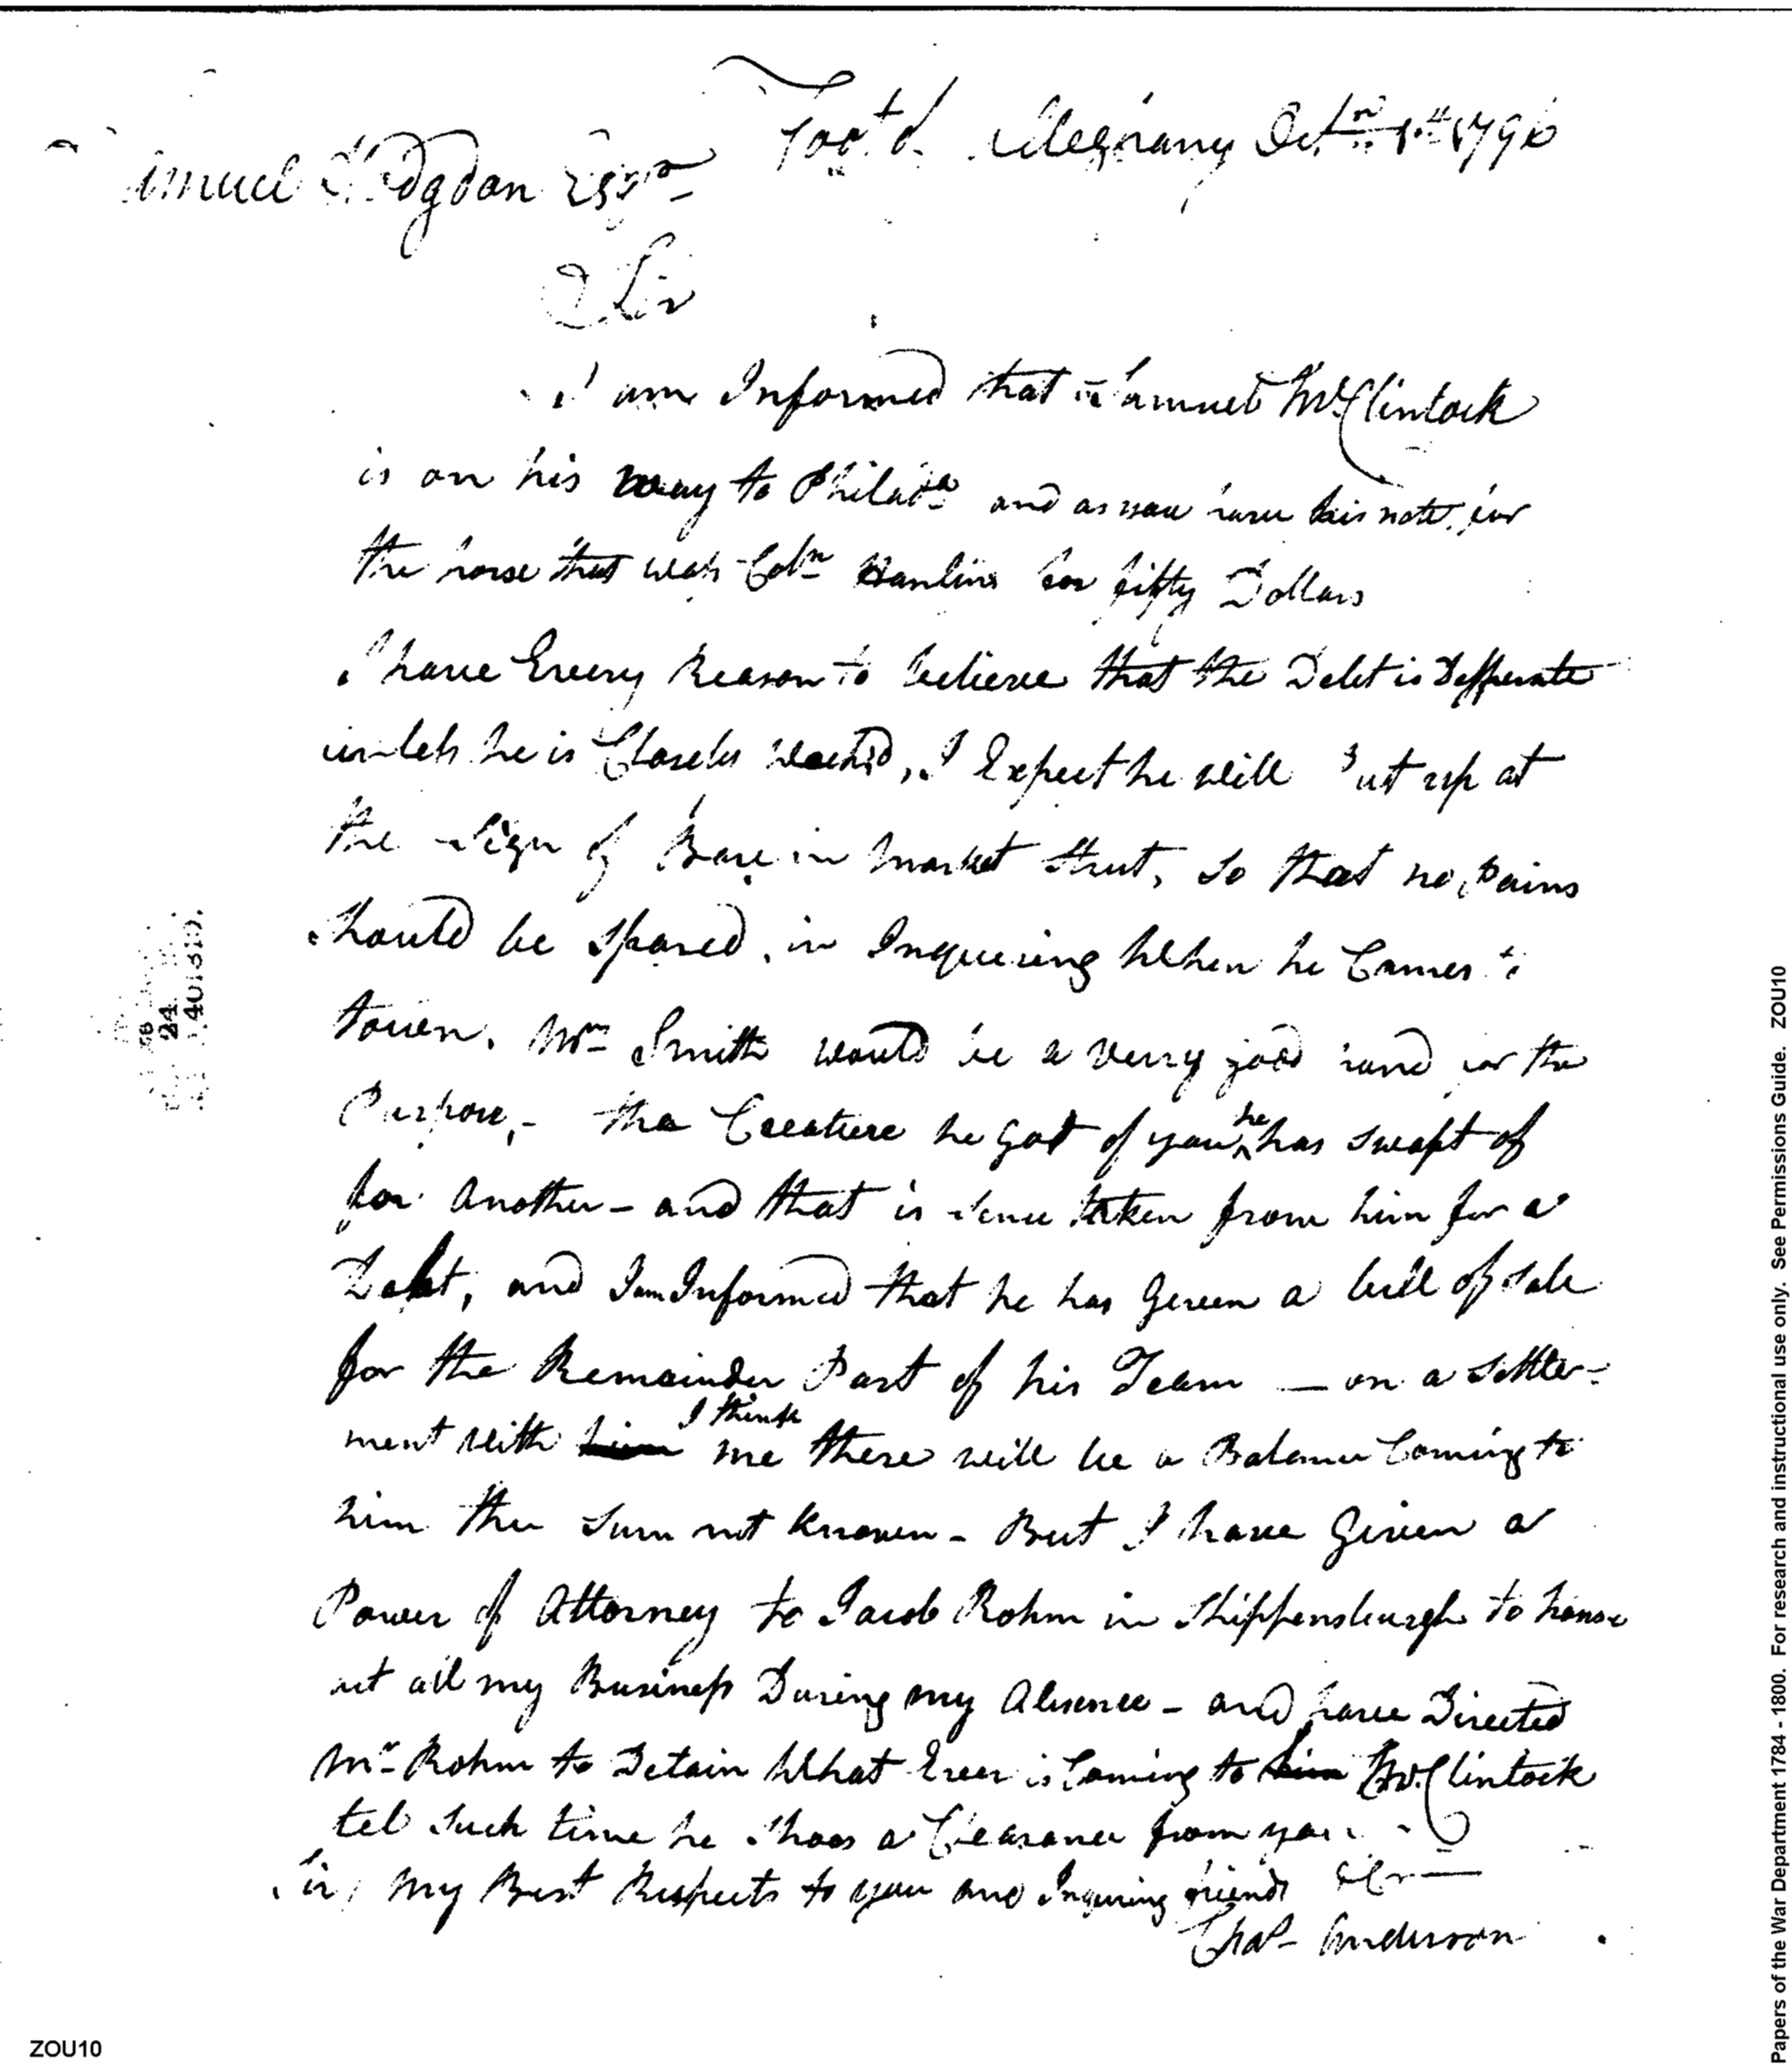 Foot of Allegrany Octr 1st 1796
Samuel Hodgdon Esqr
D Sir
I am Informed that Samuel McClintock
is on his way to Philada and as you have his note for
the horse that was Coln Hanlins for fifty Dollars
I have Every Reason to believe that the Debt is Desperate
unless he is Closely watchd, I Expect he will Put up at
the Sign of Bare in Market Street, So that no Pains
Should be Spared, in Inquiering When he Comes to
town. Mr Smith would be a verry good hand for the
Purpose, - the Creature he got of you he has swapt of
for another - and that is Sence taken from him for a
Debt, and I am Informed that he has Geven a bill of Sale
for the Remainder Part of his Team — on a Settle-
ment with him I think me there will be a Balance Coming to
him the Sum not known - But I have Given a
Power of Attorney to Jacob Rohm in Shippensburgh to transe
act all my Business During my Absence - and have Directed
Mr Rohm to Detain What Ever is Coming to him McClintock
tel Such time he Shoes a Clearance from you -
Sir, My Best Respects to you and Inquiring friends
Chas Anderson
24
401310.
ZOU10
Papers of the War Department 1784 - 1800. For research and instructional use only. See Permissions Guide. ZOU10